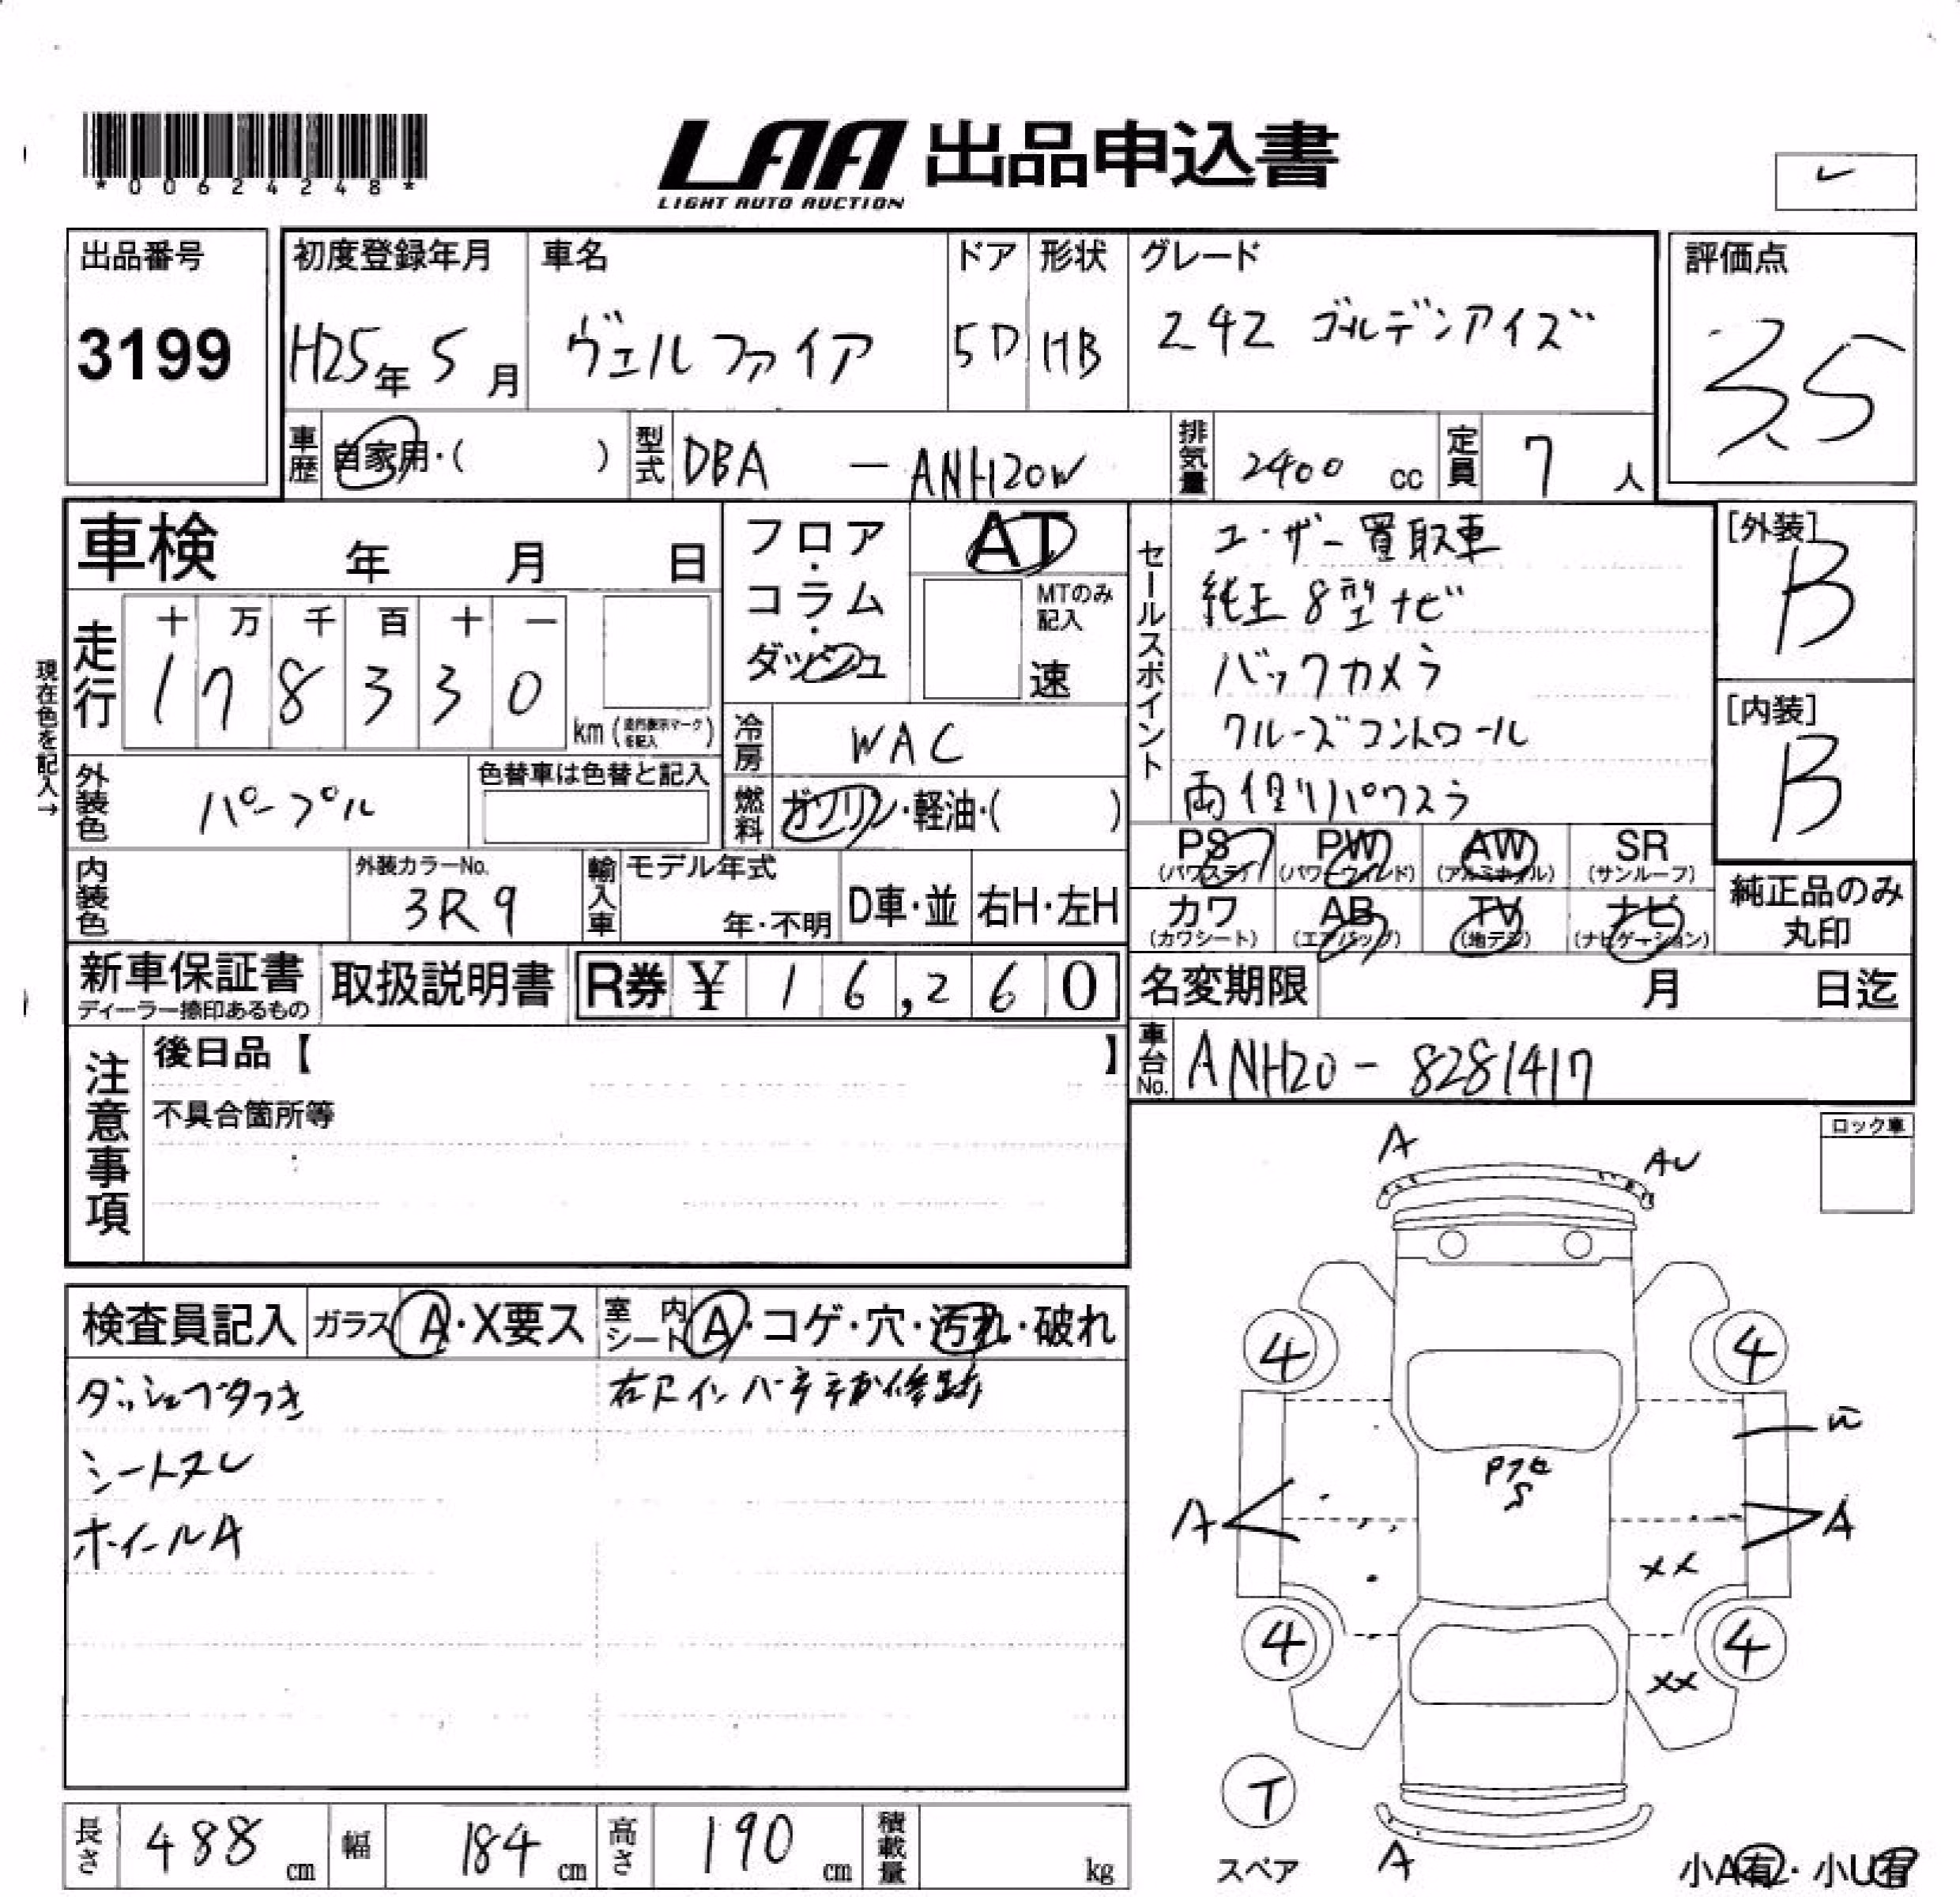 *00624248*
LAA 出品申込書
LIGHT AUTO AUCTION
出品番号
3199
初度登録年月
H25年 5月
車名
ヴェルファイア
ドア
5D
形状
HB
グレード
24Z ゴールデンアイズ
評価点
3.5
車歴 自家用・( )
型式 DBA - ANH20W
排気量 2400 cc
定員 7 人
車検 年 月 日
フロア・コラム・ダッシュ
AT
MTのみ記入
速
走行
十 万 千 百 十 一
1 7 8 3 3 0
km
現在色を記入→
冷房 WAC
燃料 ガソリン・軽油・( )
外装色 パープル
色替車は色替と記入
内装色
外装カラーNo.
3R9
輸入車
モデル年式
年・不明
D車・並
右H・左H
セールスポイント
ユーザー買取車
純正8型ナビ
バックカメラ
クルーズコントロール
両側パワスラ
[外装]
B
[内装]
B
PS (パワステ)
PW (パワーウィンド)
AW (アルミホイル)
SR (サンルーフ)
カワ (カワシート)
AB (エアバッグ)
TV (地デジ)
ナビ (ナビゲーション)
純正品のみ
丸印
新車保証書
ディーラー捺印あるもの
取扱説明書
R券 ¥ 16,260
名変期限 月 日迄
車台No. ANH20-8281417
注意事項
後日品【 】
不具合箇所等
ロック車
検査員記入
ガラス A・X要ス
室内シート A・コゲ・穴・汚れ・破れ
シートスレ
ホイールA
A
AU
4
4
A
A
XX
4
4
XX
T
スペア
A
小A有・小U有
長さ 488 cm
幅 184 cm
高さ 190 cm
積載量 kg